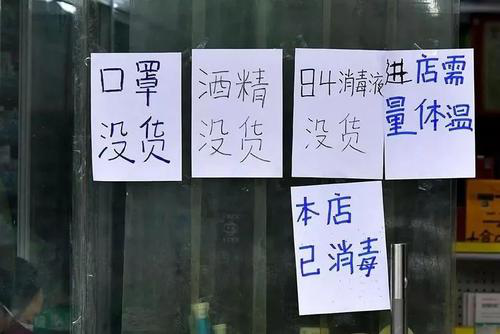 口罩
没货
酒精
没货
84消毒液
没货
进店需
量体温
本店
已消毒